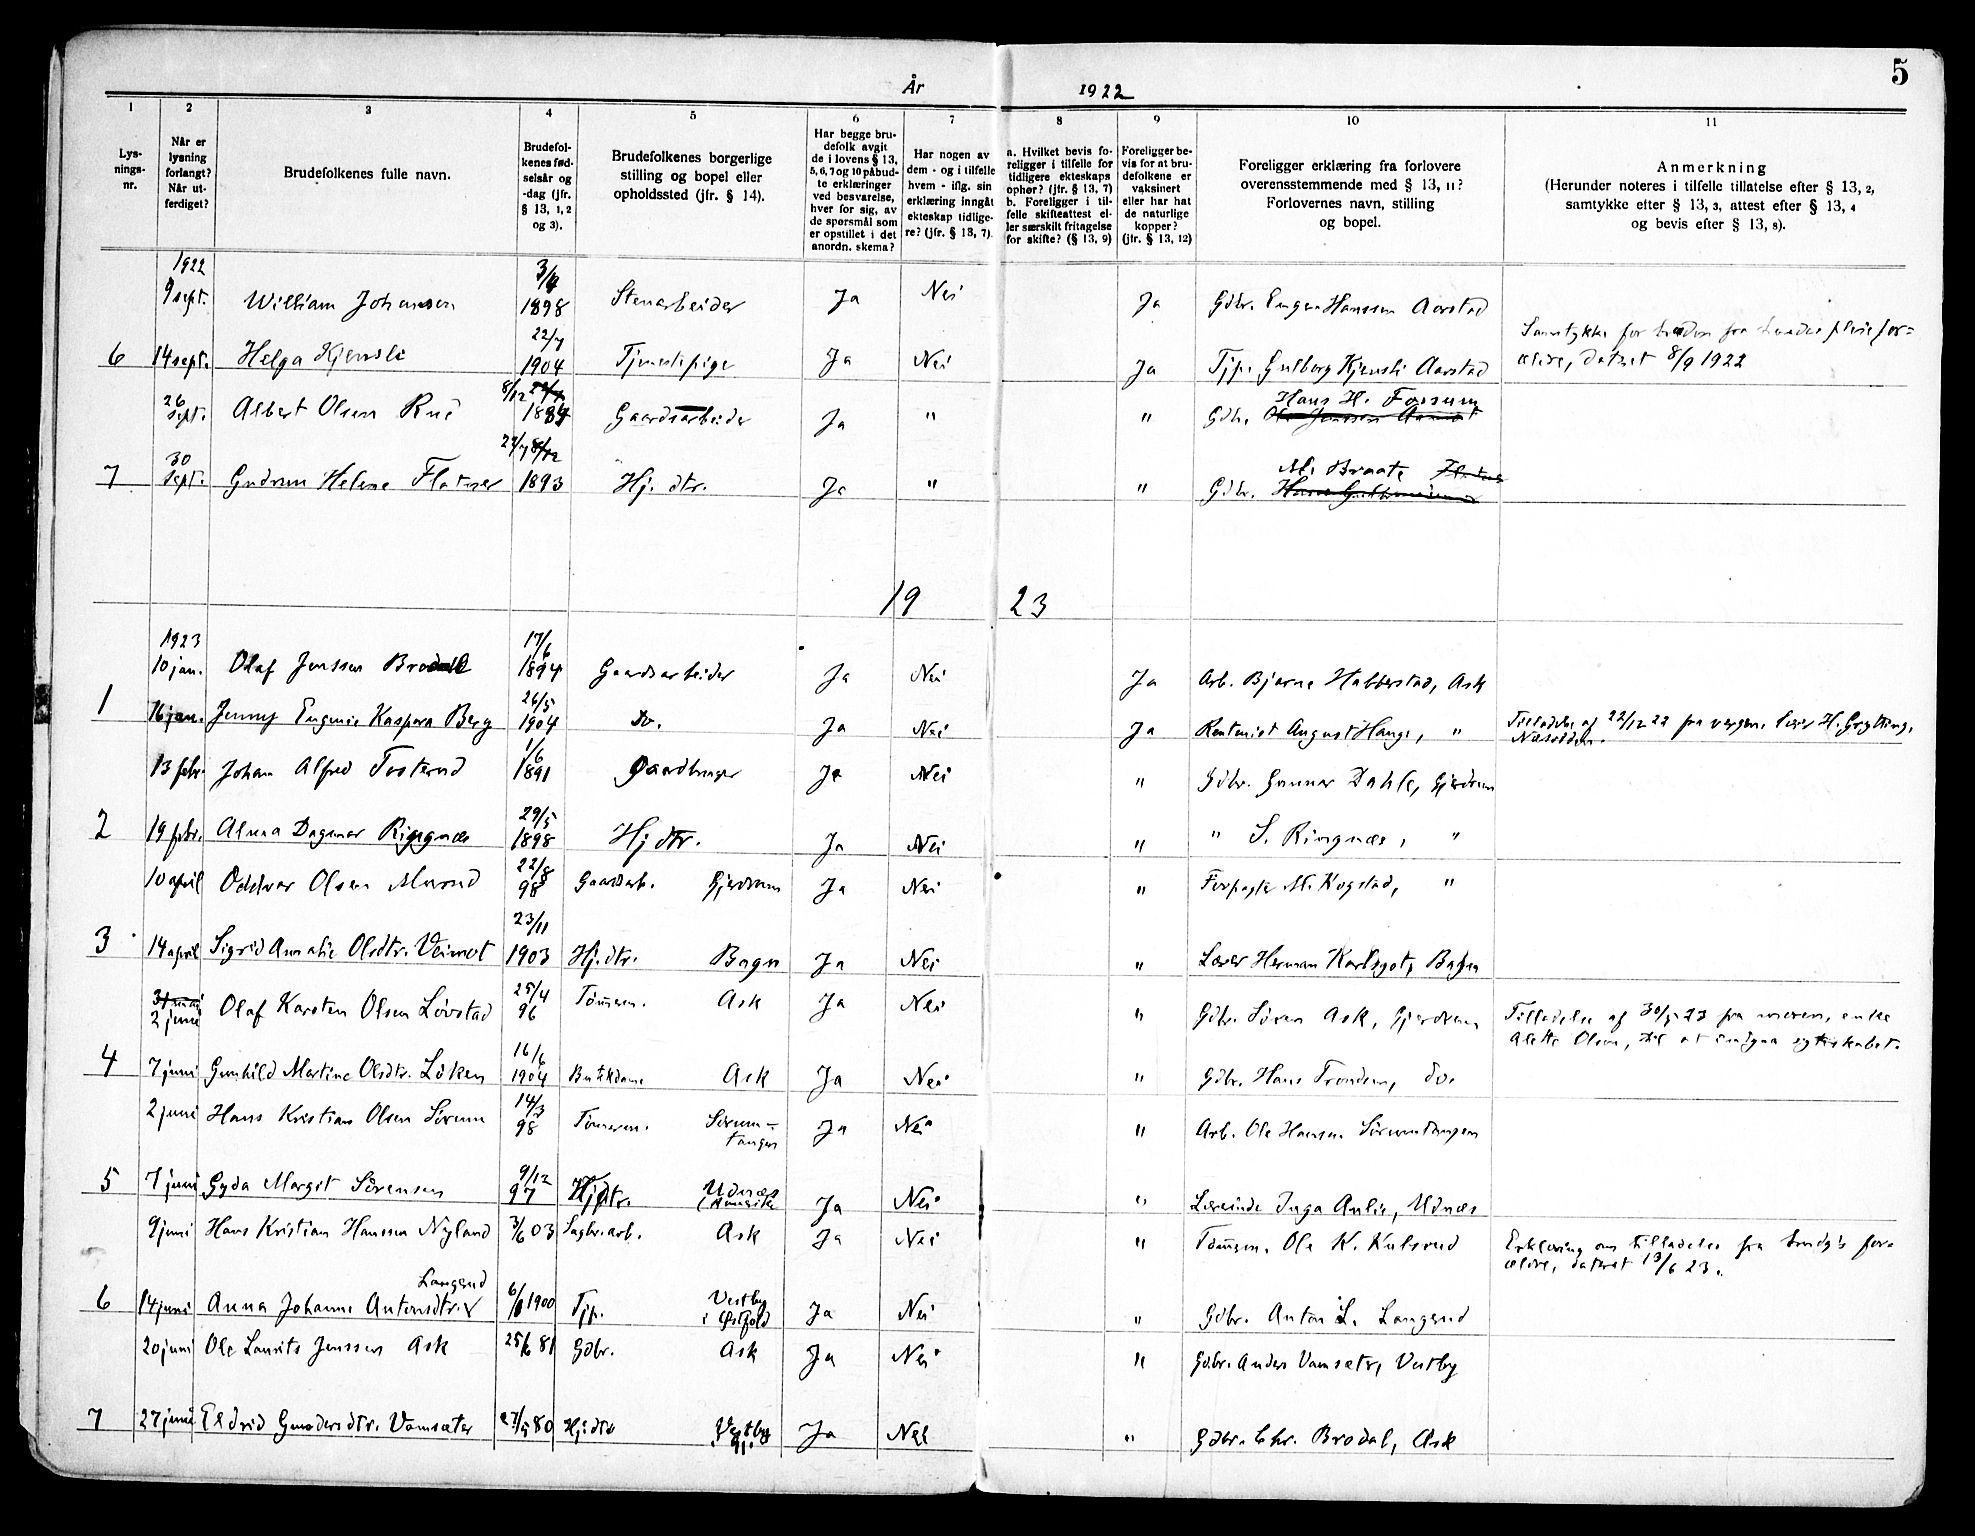 5
År 1922
1 2 3 4 5 6 7 8 9 10 11
Lys-
nings-
nr.
Når er
lysning
forlangt?
Når ut-
ferdiget?
Brudefolkenes fulle navn.
Brudefol-
kenes fød-
selsår og
-dag (jfr.
§ 13, 1, 2
og 3).
Brudefolkenes borgerlige
stilling og bopel eller
opholdssted (jfr. § 14).
Har begge bru-
defolk avgit
de i lovens § 13,
5, 6, 7 og 10 påbud-
te erklæringer
ved besvarelse,
hver for sig, av
de spørsmål som
er opstillet i det
anordn. skema?
Har nogen av
dem - og i tilfelle
hvem - iflg. sin
erklæring inngåt
ekteskap tidlige-
re? (jfr. § 13, 7).
a. Hvilket bevis fo-
religger i tilfelle for
tidligere ekteskaps
ophør? (jfr. § 13, 7)
b. Foreligger i til-
felle skifteattest el-
ler særskilt fritagelse
for skifte? (§ 13, 9)
Foreligger be-
vis for at bru-
defolkene er
vaksinert
eller har hat
de naturlige
kopper?
(jfr. § 13, 12)
Foreligger erklæring fra forlovere
overensstemmende med § 13, 11?
Forlovernes navn, stilling
og bopel.
Anmerkning
(Herunder noteres i tilfelle tillatelse efter § 13, 2,
samtykke efter § 13, 3, attest efter § 13, 4
og bevis efter § 13, 8).
1922
9 sept. William Johansen 3/4 1898 Stenarbeider Ja Nei Ja Gdbr. Eugen Hanssen Aarstad
6 14 sept. Helga Kjensli 22/7 1904 Tjenestepige Ja Nei Ja Tjp. Gulborg Kjensli Aarstad
Samtykke for bruden fra hendes pleiefor=
ældre, datert 8/9 1922
26 sept. Albert Olsen Rud 8/12 1884 Gaardsarbeider Ja " " Gdbr. Hans H. Fossum
7 30 sept. Gudrun Helene Flatner 1893 Hj. dtr. Ja " " Gdbr. M. Braate
19 23
1923
10 jan. Olaf Jenssen Brodal 17/6 1894 Gaardsarbeider Ja Nei Ja Arb. Bjarne Habberstad, Ask
1 16 jan. Jenny Eugenie Kaspara Berg 26/5 1904 Do. Ja Nei Ja Rentenist August Hauge, "
Tilladelse af 22/12 22 fra vergen, lærer H. Grytting,
Næsodden.
13 febr. Johan Alfred Tosterud 1/6 1891 Gaardbruger Ja Nei " Gdbr. Gunnar Dahle, Gjerdrum
2 19 febr. Alma Dagmar Ringnæs 29/5 1898 Hj dtr. Ja Nei " " S. Ringnæs, "
10 april Oddvar Olsen Murud 22/8 98 Gaardarb. Gjerdrum Ja Nei " Forpagter M. Kogstad, "
3 14 april Sigrid Amalie Olsdtr. Veimot 23/11 1903 Hj. dtr. Bagn Ja Nei " Lærer Herman Karlsgot, Bagn
31 mai
2 juni Olaf Karsten Olsen Løvstad 25/4 96 Tømmerm. Ask Ja Nei " Gdbr. Søren Ask, Gjerdrum
Tilladelse af 30/5 23 fra moren, enke
Alette Olsen, til at indgaa egteskabet.
4 7 juni Gunhild Martine Olsdtr. Løken 16/6 1904 Butikdame Ask Ja Nei " Gdbr. Hans Tronden, do.
2 juni Hans Kristian Olsen Sörum 14/3 98 Tømmerm. Sörum=
tangen Ja Nei " Arb. Ole Hansen Sörumtangen
5 7 juni Gyda Margit Sörensen 9/12 97 Hjdtr. Udnæs
(Amerika Ja Nei " Lærerinde Inga Aulie, Udnæs
9 juni Hans Kristian Hanssen Nyland 3/6 03 Sagbr. arb. Ask Ja Nei " Tømmerm. Ole K. Kulsrud
Erklæring om tilladelse fra brudg's for=
ældre, datert 13/6 23.
6 14 juni Anna Johanne Antonsdtr. Langerud 1900 Tjp. Vestby
i Østfold Ja Nei " Gdbr. Anton L. Langerud
20 juni Ole Laurits Jenssen Ask 25/6 81 Gdbr. Ask Ja Nei " Gdbr. Anders Vamsæter, Vestby
7 27 juni Eldrid Gundersdtr. Vamsæter 27/5 80 Hjdtr Vestby Ja Nei " Gdbr. Chr. Brodal, Ask